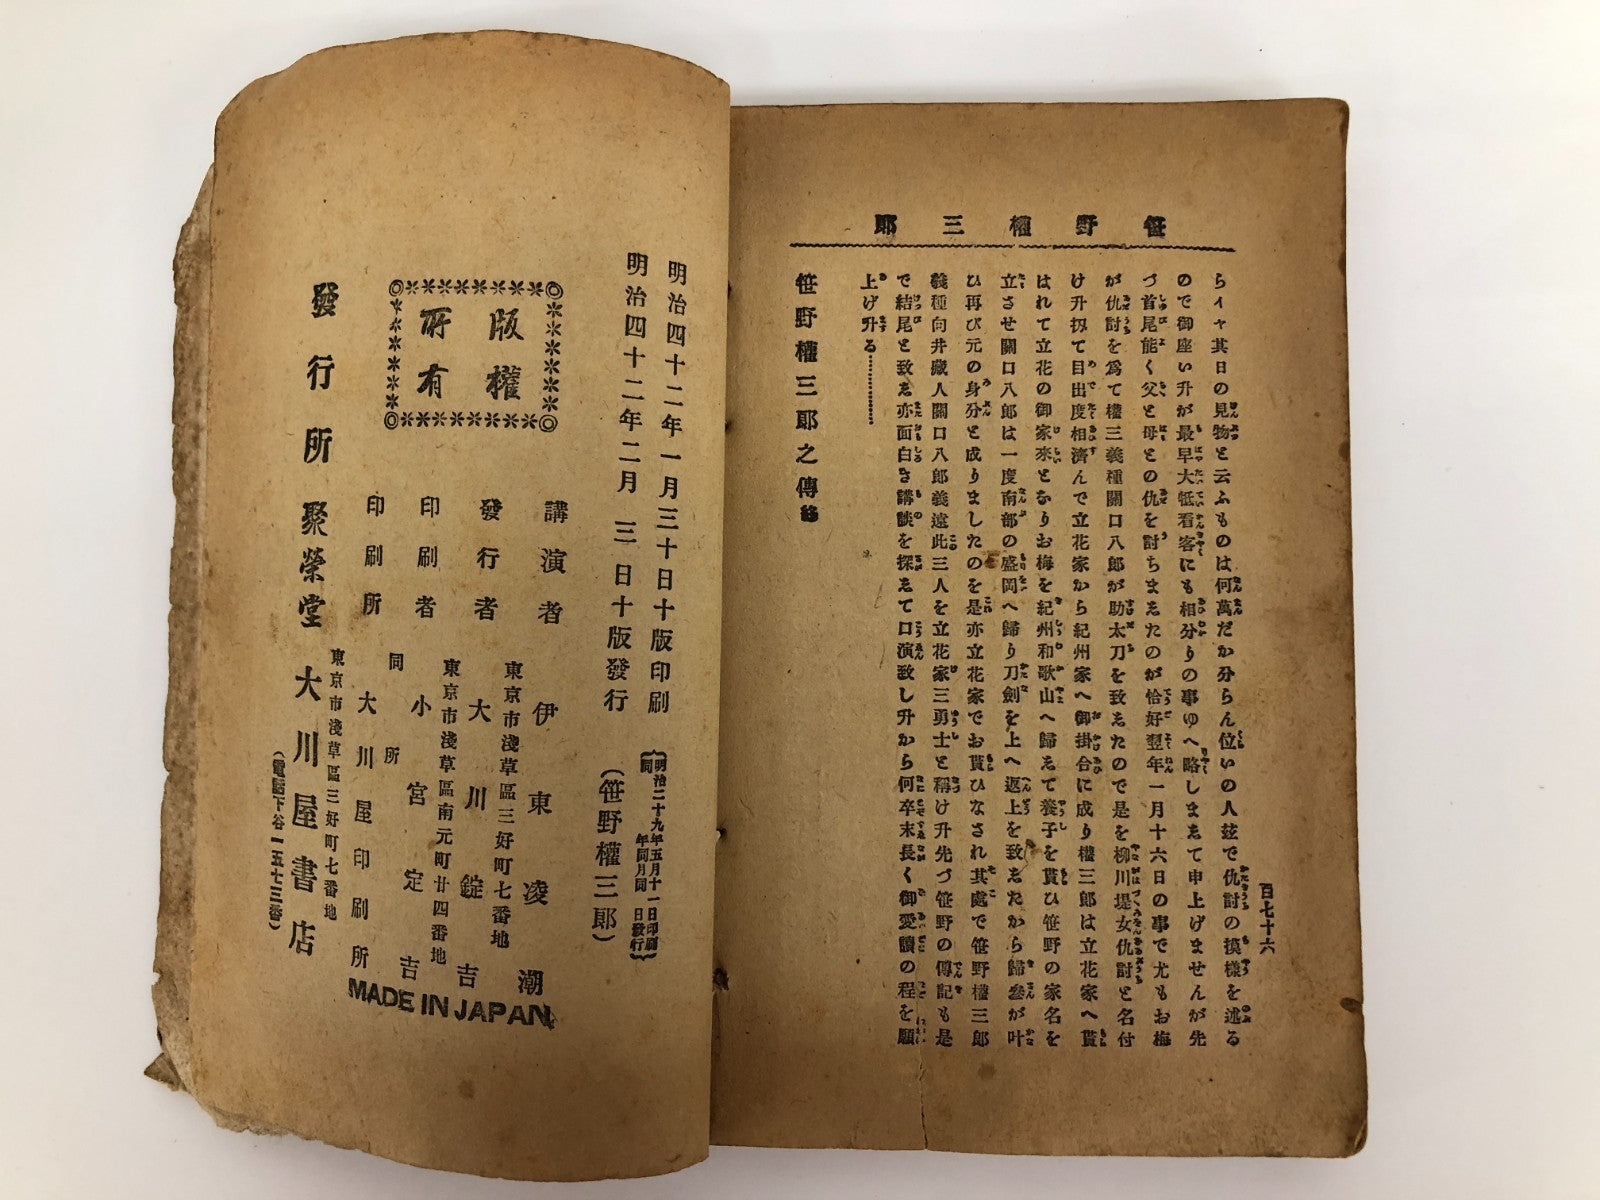 笹野權三郎
百七十六
らイヤ其日の見物と云ふものは何萬だか分らん位いの人玆で仇討の摸樣を述る
ので御座い升が最早大抵看客にも相分りの事ゆへ略しまゑて申上げませんが先
づ首尾能く父と母との仇を討ちまゑたのが恰好翌年一月十六日の事で尤もお梅
が仇討を爲て權三義種關口八郎が助太刀を致ゑたので是を柳川堤女仇討と名付
け升扨て目出度相濟んで立花家から紀州家へ御掛合に成り權三郎は立花家へ貰
はれて立花の御家來となりお梅を紀州和歌山へ歸ゑて養子を貰ひ笹野の家名を
立させ關口八郎は一度南部の盛岡へ歸り刀劍を上へ返上を致ゑたから歸參が叶
ひ再び元の身分と成りましたのを是亦立花家でお貰ひなされ其處で笹野權三郎
義種向井藏人關口八郎義遠此三人を立花家三勇士と稱け升先づ笹野の傳記も是
で結尾と致ゑ亦面白き講談を探ゑて口演致し升から何卒末長く御愛讀の程を願
上げ升る…………
笹野權三郎之傳終
明治四十二年一月三十日十版印刷
明治四十二年二月三日十版發行
明治二十九年五月十一日印刷
同年同月同日發行
(笹野權三郎)
版權
所有
講演者 伊東凌潮
東京市淺草區三好町七番地
發行者 大川錠吉
東京市淺草區南元町廿四番地
印刷者 小宮定吉
同所
印刷所 大川屋印刷所
東京市淺草區三好町七番地
發行所 聚榮堂 大川屋書店
(電話下谷一五七三番)
MADE IN JAPAN